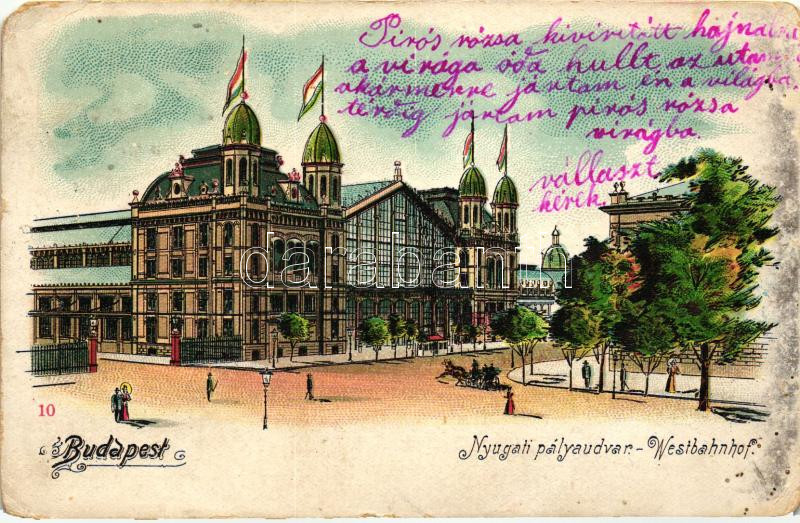 Pirós rózsa kivirított hajnalra
a virága óda hullt az utamra
akármerre jártam én a világba,
térdig jártam pirós rózsa
virágba.
vállaszt
kérek.
darabanth
10
Budapest
Nyugati pályaudvar. - Westbahnhof.